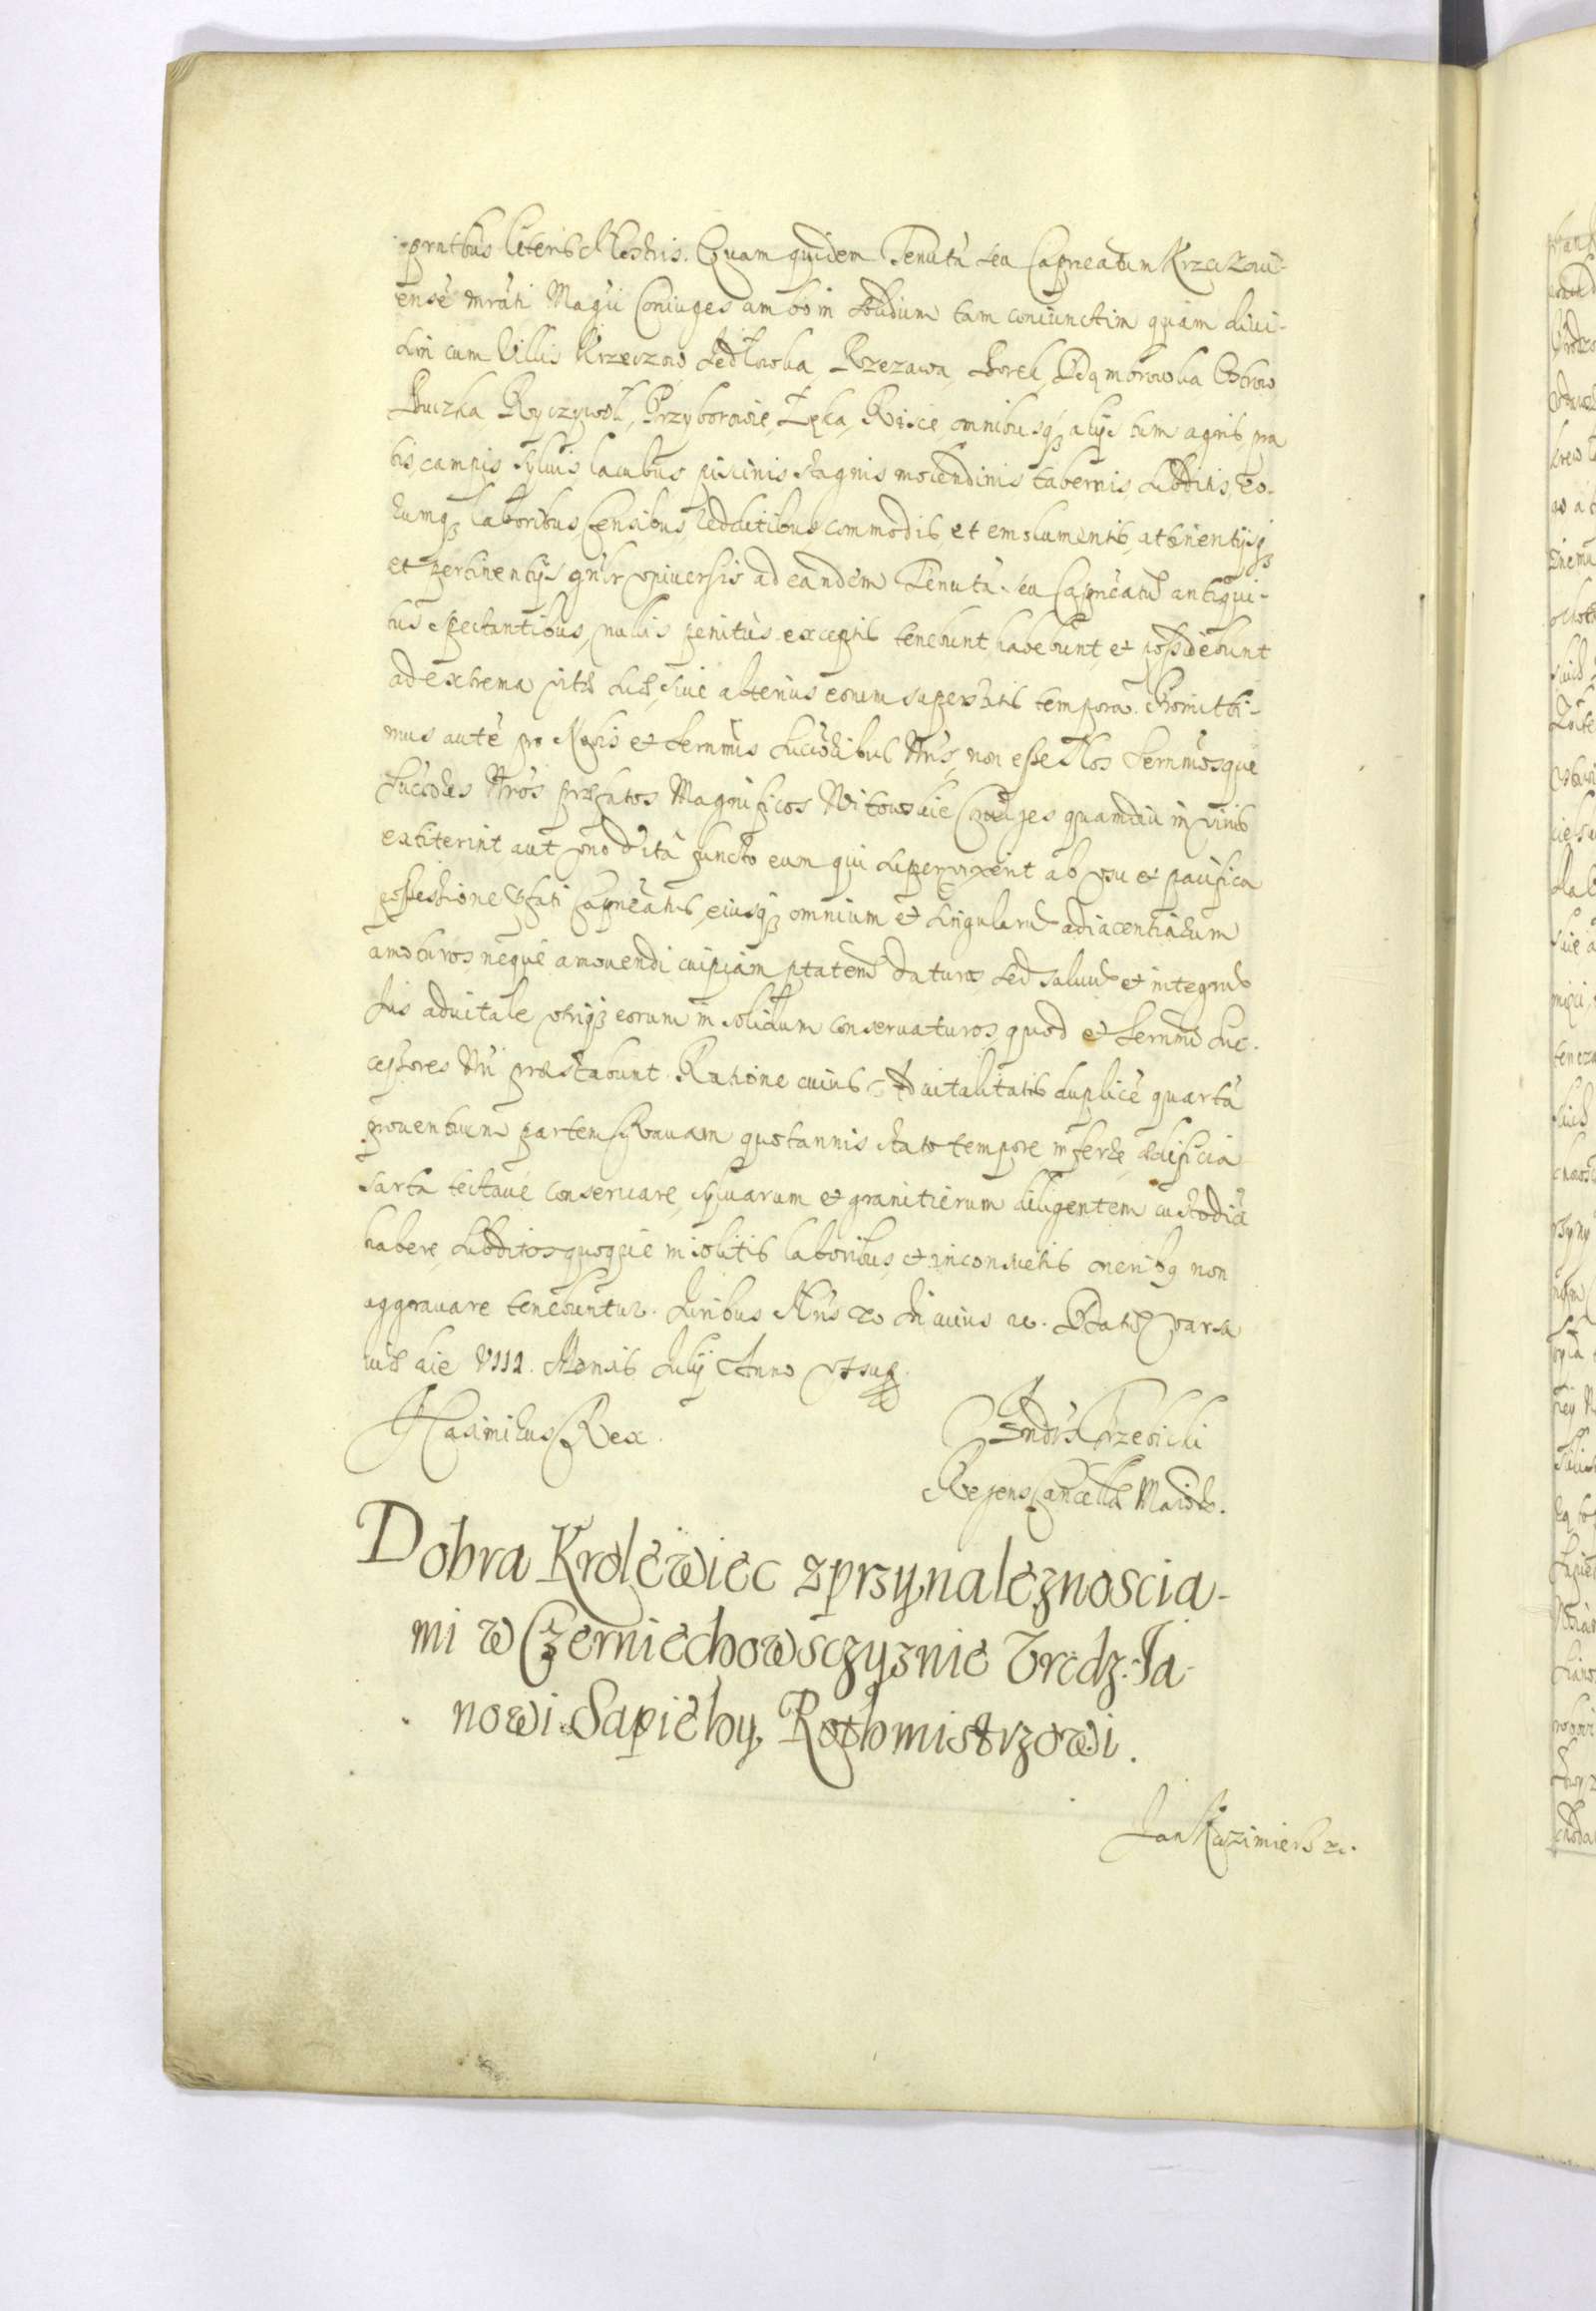 pnntbus literis Nostris. Quam quidem Tenutā seu Capneatum Krzeczowi-
ensē mrāti Mag̃ci Coniuges ambo in solidum tam coniunctim quam divi-
sim cum Villis Krzeczow Jedłowka, Rzezawa, Borek, Dąmbrowka Ostrow
Buczka Ryczywoł, Przyborowie, Łęka, omnibusq3 alijs tum agris pra
tis, campis syluis lacubus piscinis stagnis molendinis tabernis subditis, eo-
rumq3 laboribus Censibus, redditibus commodis, et emolumentis, attinentijsq3
et pertinentijs gnĩr vniuersis ad eandem Tenutā seu Capneatũ antiqui-
tus spectantibus, nullis penitùs exceptis tenebunt, habebunt et possidebunt
ad extrema vitæ suæ, siue alterius eorum superstitis tempora. Promitti-
mus autē pro Nobis et Sernmis Succōribus Nrĩs, non esse Nos Sernmosque
Succōres Nrōs præfatos Magnificos Witowskie Coniuges quamdiu in viuis
extiterint aut vno vitā functo eum qui supervixerit ab vsu et pacifica
possessione pfati Capneatus, eiusq3 omnium et singularũ adiacentiarum
amoturos, neque amouendi cuipiam ptatem daturos sed saluũ et integrũ
Jus aduitale vtriq3 eorum in solidum conseruaturos, quod et Sernmi Suc-
cessores Nrĩ præstabunt. Ratione cuius Aduitalitatis duplicē quartā
prouentuum partem Ravam quotannis stato tempore inferre, ædificia
sarta tectave conseruare, syluarum et granitierum diligentem custodiā
habere, subditos quoque insolitis laboribus, et inconsuetis onerib9 non
aggrauare tenebuntur. Juribus Nris &c In cuius &c. Datũ Varsa
uiæ die VIII. Mensis Julij Anno vt sup
J Casimirus Rex.
Andr̃s Trzebicki
Regens Cancellæ Maioris.
Dobra Krolewiec z przynaleznoscia-
mi w Czerniechowsczyznie Vrodz. Ja-
nowi Sapiehy, Rothmistrzowi.
Jan Kazimierz &c.